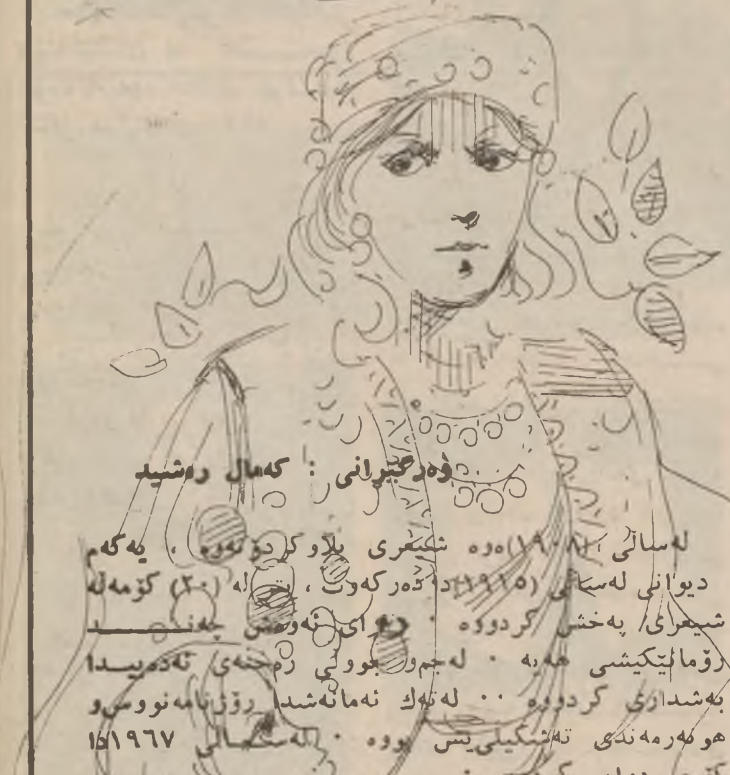 وەرگێڕانی : کەمال رەشید
لەسالی (١٩٠٨)ەوە شیعری بلاوکردۆتەوە ، یەکەم
دیوانی لەسالی (١٩١٥)دا دەرکەوت ، لە (٣٠) کۆمەلە
شیعری پەخش کردووە ٠ ئەوەش چەنـــد
رۆمانێکیشی هەیە ٠ لەجموجووڵی رەخنەی ئەدەبیــدا
بەشداری کردووە ٠٠ لەتەك ئەمانەشدا رۆژنامەنووس و
هونەرمەندی تەشکیلییش بووە ٠ لەســالی ١٩٦٧دا